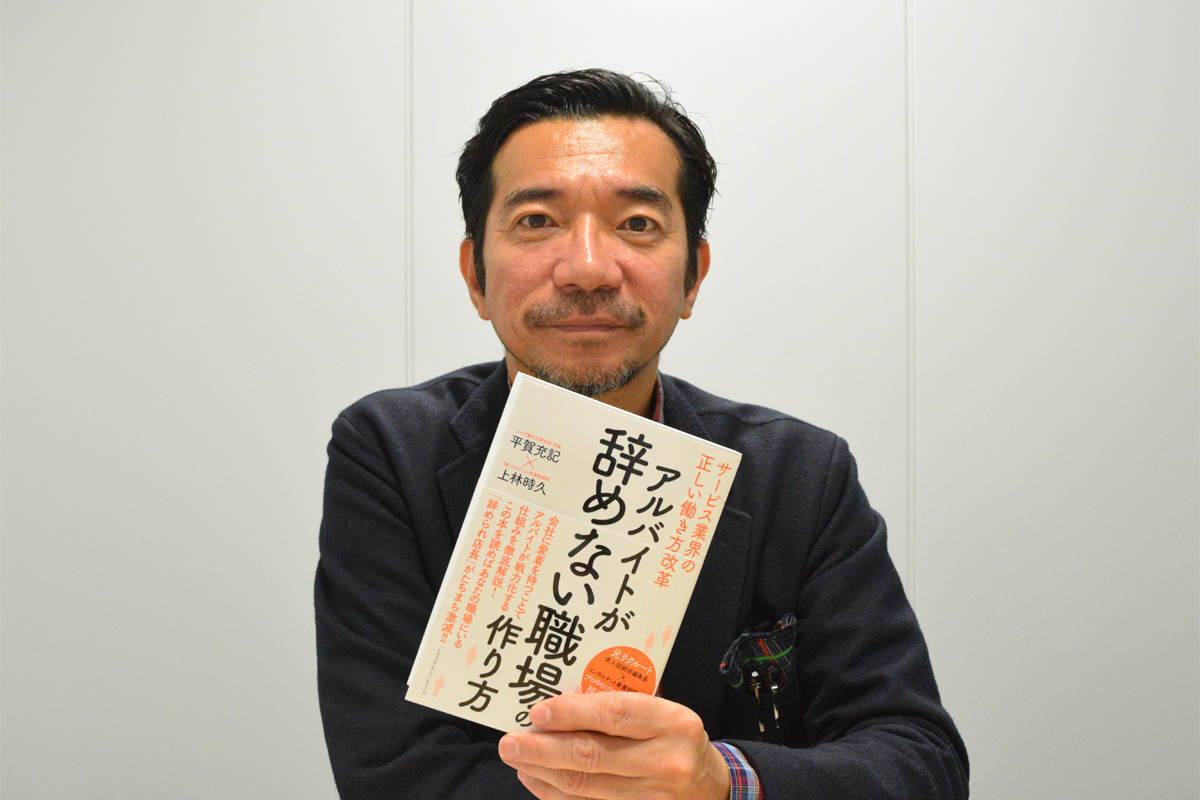 サービス業界の
正しい働き方改革
アルバイトが
辞めない職場の
作り方
平賀充記
×
上林時久
会社に愛着を持つことで
アルバイトが戦力化する
仕組みを徹底解説！
この本を読めばあなたの職場にいる
「辞められ店長」がたちまち激減!!
元リクルート
求人誌統括編集長
×